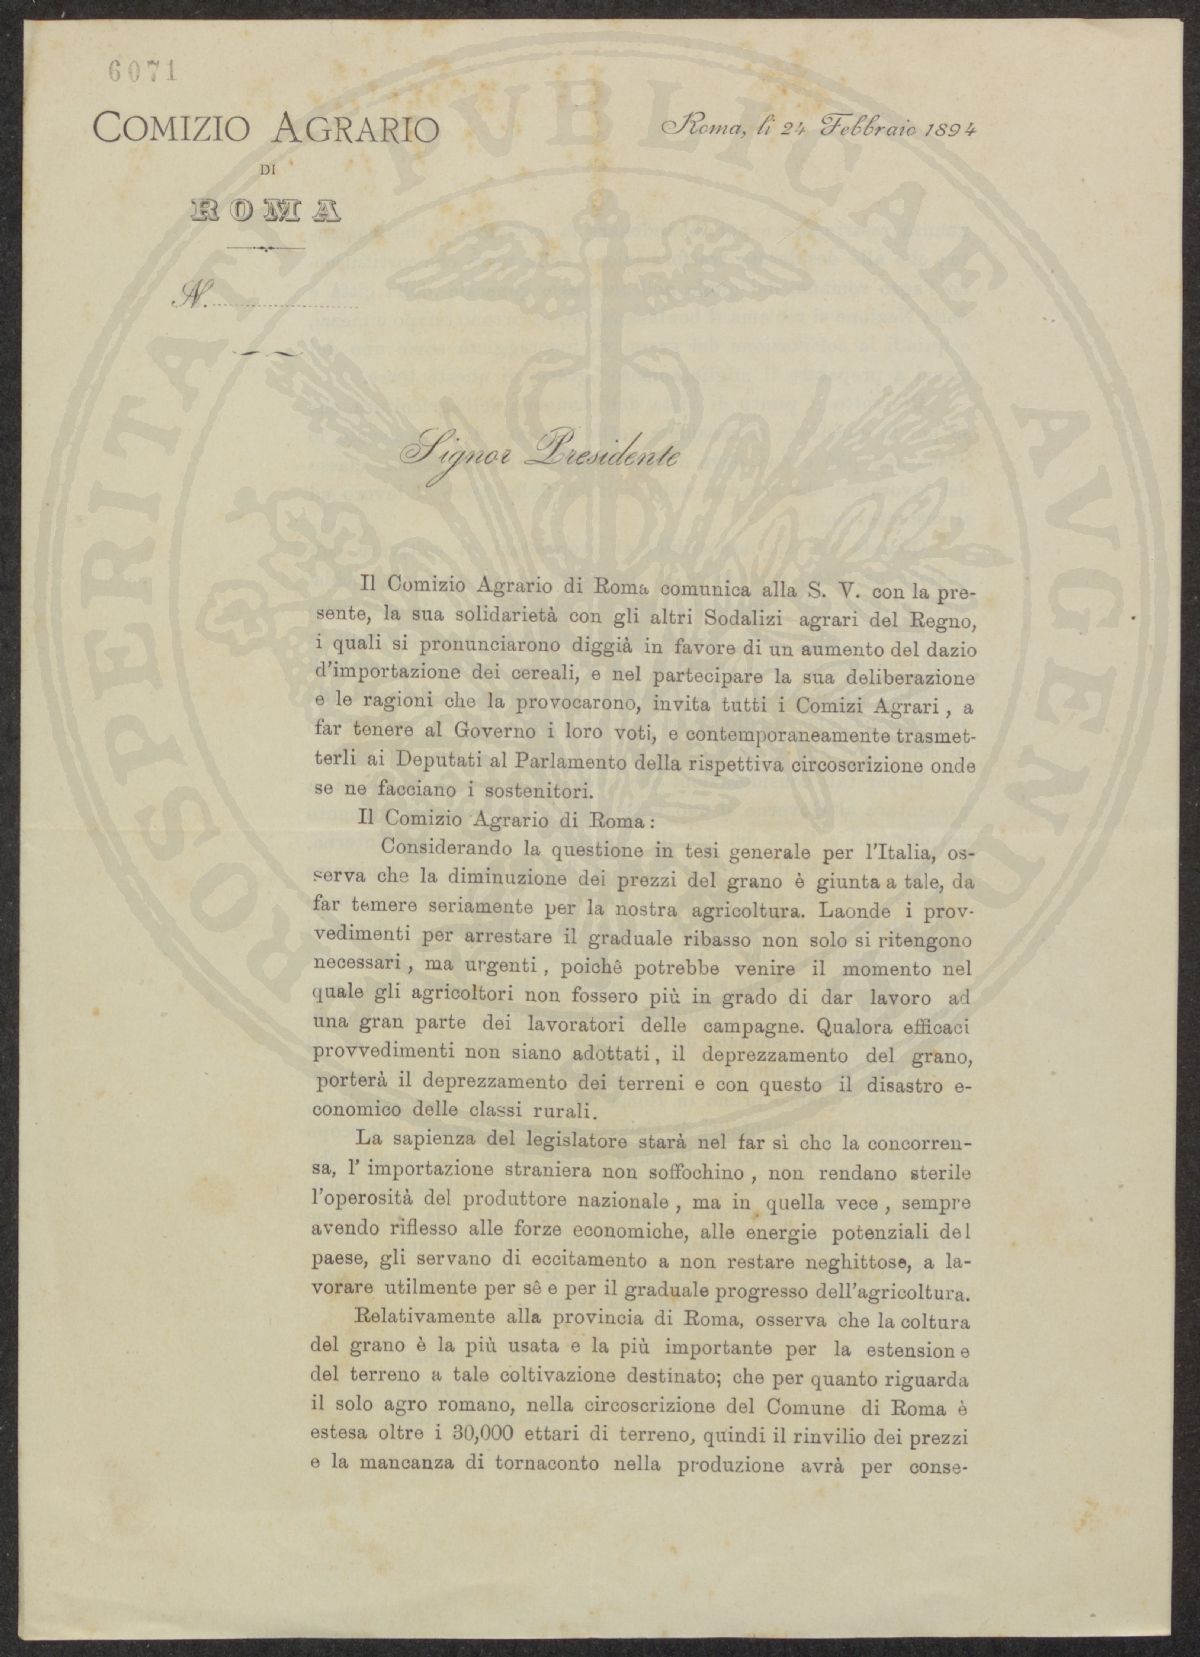 6071
COMIZIO AGRARIO
DI
ROMA
N.
Roma, li 24 Febbraio 1894
PROSPERITATI PVBLICAE AVGENDAE
Signor Presidente
Il Comizio Agrario di Roma comunica alla S. V. con la pre-
sente, la sua solidarietà con gli altri Sodalizi agrari del Regno,
i quali si pronunciarono diggià in favore di un aumento del dazio
d'importazione dei cereali, e nel partecipare la sua deliberazione
e le ragioni che la provocarono, invita tutti i Comizi Agrari, a
far tenere al Governo i loro voti, e contemporaneamente trasmet-
terli ai Deputati al Parlamento della rispettiva circoscrizione onde
se ne facciano i sostenitori.
Il Comizio Agrario di Roma:
Considerando la questione in tesi generale per l'Italia, os-
serva che la diminuzione dei prezzi del grano è giunta a tale, da
far temere seriamente per la nostra agricoltura. Laonde i prov-
vedimenti per arrestare il graduale ribasso non solo si ritengono
necessari, ma urgenti, poichê potrebbe venire il momento nel
quale gli agricoltori non fossero più in grado di dar lavoro ad
una gran parte dei lavoratori delle campagne. Qualora efficaci
provvedimenti non siano adottati, il deprezzamento del grano,
porterà il deprezzamento dei terreni e con questo il disastro e-
conomico delle classi rurali.
La sapienza del legislatore starà nel far sì che la concorren-
sa, l' importazione straniera non soffochino, non rendano sterile
l'operosità del produttore nazionale, ma in quella vece, sempre
avendo riflesso alle forze economiche, alle energie potenziali del
paese, gli servano di eccitamento a non restare neghittose, a la-
vorare utilmente per sê e per il graduale progresso dell'agricoltura.
Relativamente alla provincia di Roma, osserva che la coltura
del grano è la più usata e la più importante per la estensione
del terreno a tale coltivazione destinato; che per quanto riguarda
il solo agro romano, nella circoscrizione del Comune di Roma è
estesa oltre i 30,000 ettari di terreno, quindi il rinvilio dei prezzi
e la mancanza di tornaconto nella produzione avrà per conse-